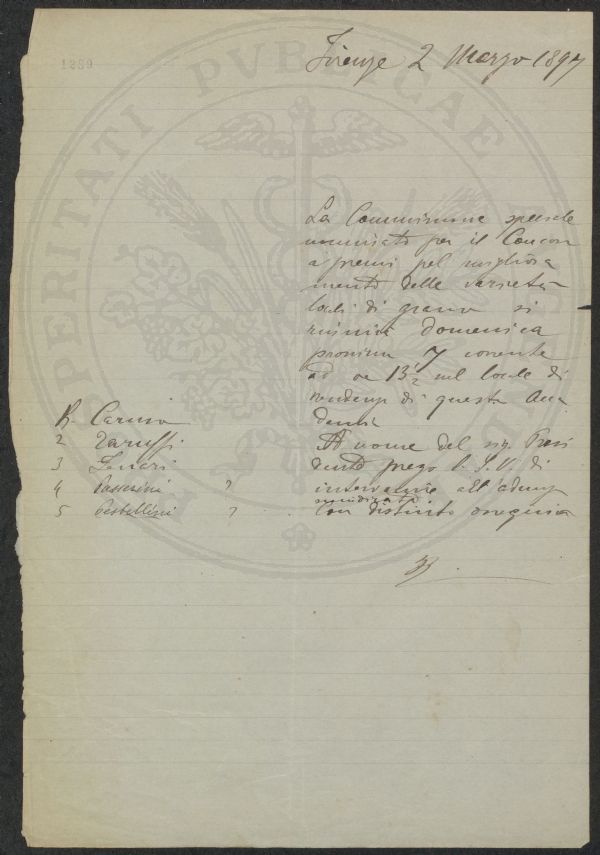 1289
Firenze 2 Marzo 1897
La Commissione speciale
nominata per il Concorso
a premi pel migliora
mento delle varietà
locali di grano si
riunirà Domenica
prossima 7 corrente
ad ore 13½ nel locale di
residenza di questa Acca
demia
A nome del sig. Presi
dente prego V. S. V. di
intervenire all'adunanza
Con distinto ossequio
R. Caruso
2 Taruffi
3
4 Passerini ?
5 Castellini ?
PROSPERITATI PVBLICAE